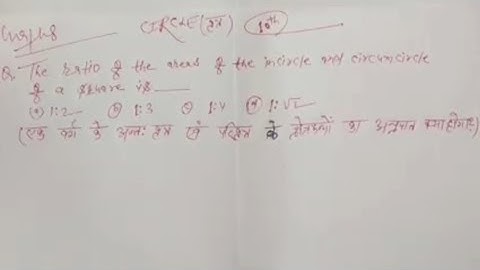 CIRCLE (वृत्त) 10th
Q. The ratio of the areas of the incircle and circumcircle
of a square is ____
(a) 1:2 (b) 1:3 (c) 1:4 (d) 1:√2
(एक वर्ग के अन्तः वृत्त एवं परिवृत्त के क्षेत्रफलों का अनुपात क्या होगा?)